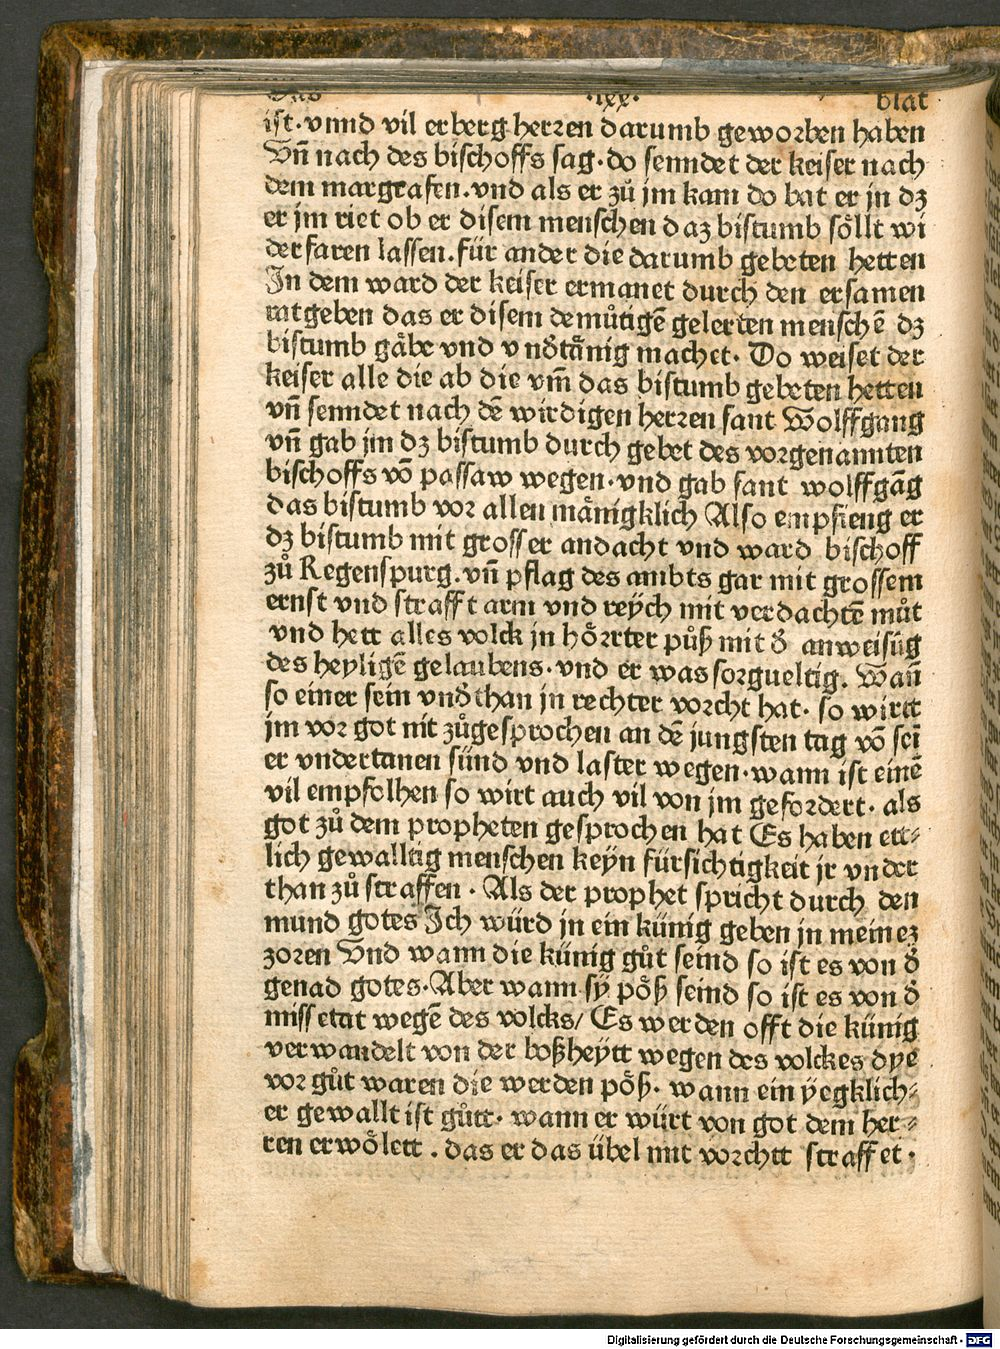 Das .lxx. blat
ist. vnnd vil erberg herren darumb geworben haben
Vn̄ nach des bischoffs sag. do senndet der keiser nach
dem margrafen. vnd als er zů jm kam do bat er jn dz
er jm riet ob er disem menschen daz bistumb söllt wi
derfaren lassen. für ander die darumb gebeten hetten
In dem ward der keiser ermanet durch den ersamen
ratgeben das er disem demůtigē gelerten menschē dz
bistumb gäbe vnd vnd̕tänig machet. Do weiset der
keiser alle die ab die vm̄ das bistumb gebeten hetten
vn̄ senndet nach dē wirdigen herren sant Wolffgang
vn̄ gab jm dz bistumb durch gebet des vorgenannten
bischoffs vō passaw wegen. vnd gab sant wolffgāg
das bistumb vor allen mänigklich Also empfieng er
dz bistumb mit grosser andacht vnd ward bischoff
zů Regenspurg. vn̄ pflag des ambts gar mit grossem
ernst vnd strafft arm vnd reych mit verdachtē můt
vnd hett alles volck jn hörrter půß mit d̕ anweisūg
des heyligē gelaubens. vnd er was sorgueltig. Wan̄
so einer sein vnd̕than jn rechter vorcht hat. so wirtt
jm vor got nit zůgesprochen an dē jungsten tag vō sei
er vndertanen sünd vnd laster wegen. wann ist einē
vil empfolhen so wirt auch vil von jm gefordert. als
got zů dem propheten gesprochen hat Es haben ett⸗
lich gewalltig menschen keyn fürsichtigkeit jr vnder
than zů straffen. Als der prophet spricht durch den
mund gotes Ich würd jn ein künig geben jn meinez
zoren Vnd wann die künig gůt seind so ist es von d̕
genad gotes. Aber wann sy pöß seind so ist es von d̕
missetat wegē des volcks/ Es werden offt die künig
verwandelt von der boßheytt wegen des volckes dye
vor gůt waren die werden pöß. wann ein yegklich⸗
er gewallt ist gůtt. wann er würt von got dem her⸗
ren erwölett. das er das übel mit vorchtt straffet.
Digitalisierung gefördert durch die Deutsche Forschungsgemeinschaft - DFG